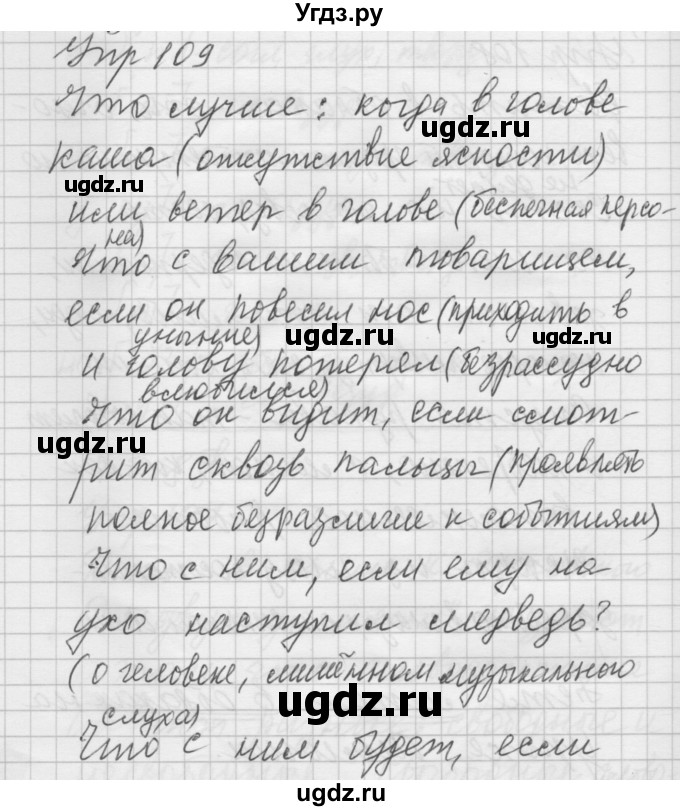 Угдз.ру
Упр 109
Что лучше: когда в голове
ugdz.ru
каша (отсутствие ясности)
ugdz.ru
или ветер в голове (беспечная персо-
на)
Что с вашим товарищем,
если он повесил нос (приходить в
уныние)
ugdz.ru
ugdz.ru
и голову потерял (безрассудно
влюбился)
Что он видит, если смот-
ugdz.ru
рит сквозь пальцы (проявлять
ugdz.ru
полное безразличие к событиям)
Что с ним, если ему на
ухо наступил медведь?
(о человеке, лишённом музыкального
ugdz.ru
слуха)
Что с ним будет, если
ugdz.ru